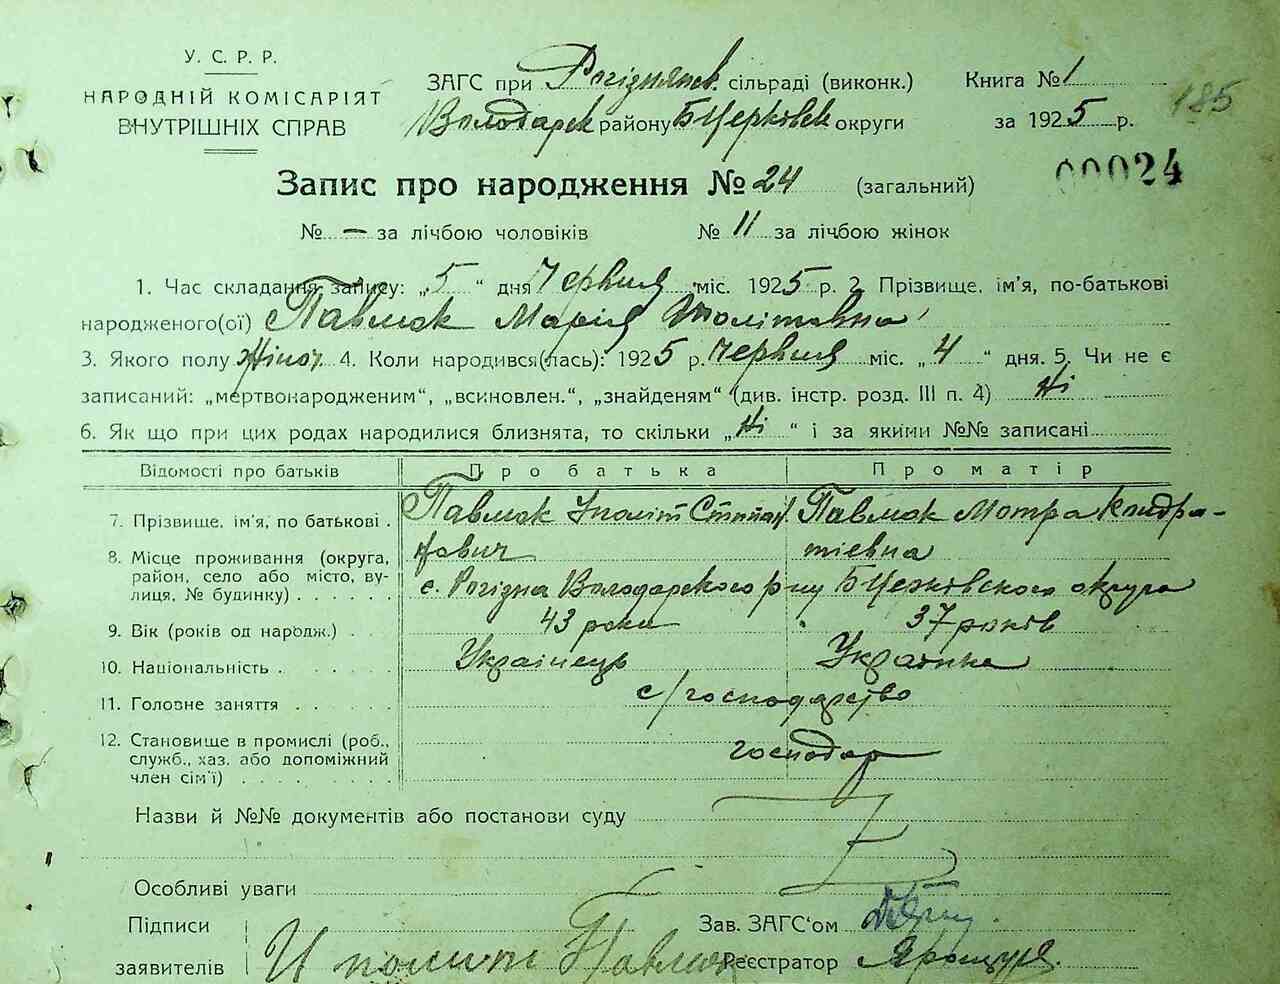 У. С. Р. Р.
НАРОДНІЙ КОМІСАРІЯТ
ВНУТРІШНІХ СПРАВ
ЗАГС при Рогізнянск. сільраді (виконк.)
Володарск району БЦерківск округи
Книга № 1
за 1925 р.
185
00024
Запис про народження № 24 (загальний)
№ — за лічбою чоловіків № 11 за лічбою жінок
1. Час складання запису: „5“ дня Червня міс. 1925 р. 2. Прізвище, ім'я, по-батькові
народженого(ої) Павлюк Марія Іполітовна
3. Якого полу жіноч 4. Коли народився(лась): 1925 р. Червня міс. „4“ дня. 5. Чи не є
записаний: „мертвонародженим“, „всиновлен.“, „знайденям“ (див. інстр. розд. III п. 4) Ні
6. Як що при цих родах народилися близнята, то скільки „Ні“ і за якими №№ записані
Відомості про батьків Про батька Про матір
7. Прізвище, ім'я, по батькові . Павлюк Іполіт Степан Павлюк Мотра Кондра-
ович тієвна
8. Місце проживання (округа,
район, село або місто, ву-
лиця, № будинку) с. Рогізна Володарского р-ну БЦерковского округа
9. Вік (років од народж.) 43 роки 37 років
10. Національність Українець Українка
11. Головне заняття с/господарство
12. Становище в промислі (роб.,
служб., хаз. або допоміжний
член сім'ї) господар
Назви й №№ документів або постанови суду
Особливі уваги
Підписи
заявителів Иполит Павлюк
Зав. ЗАГС'ом
Реєстратор